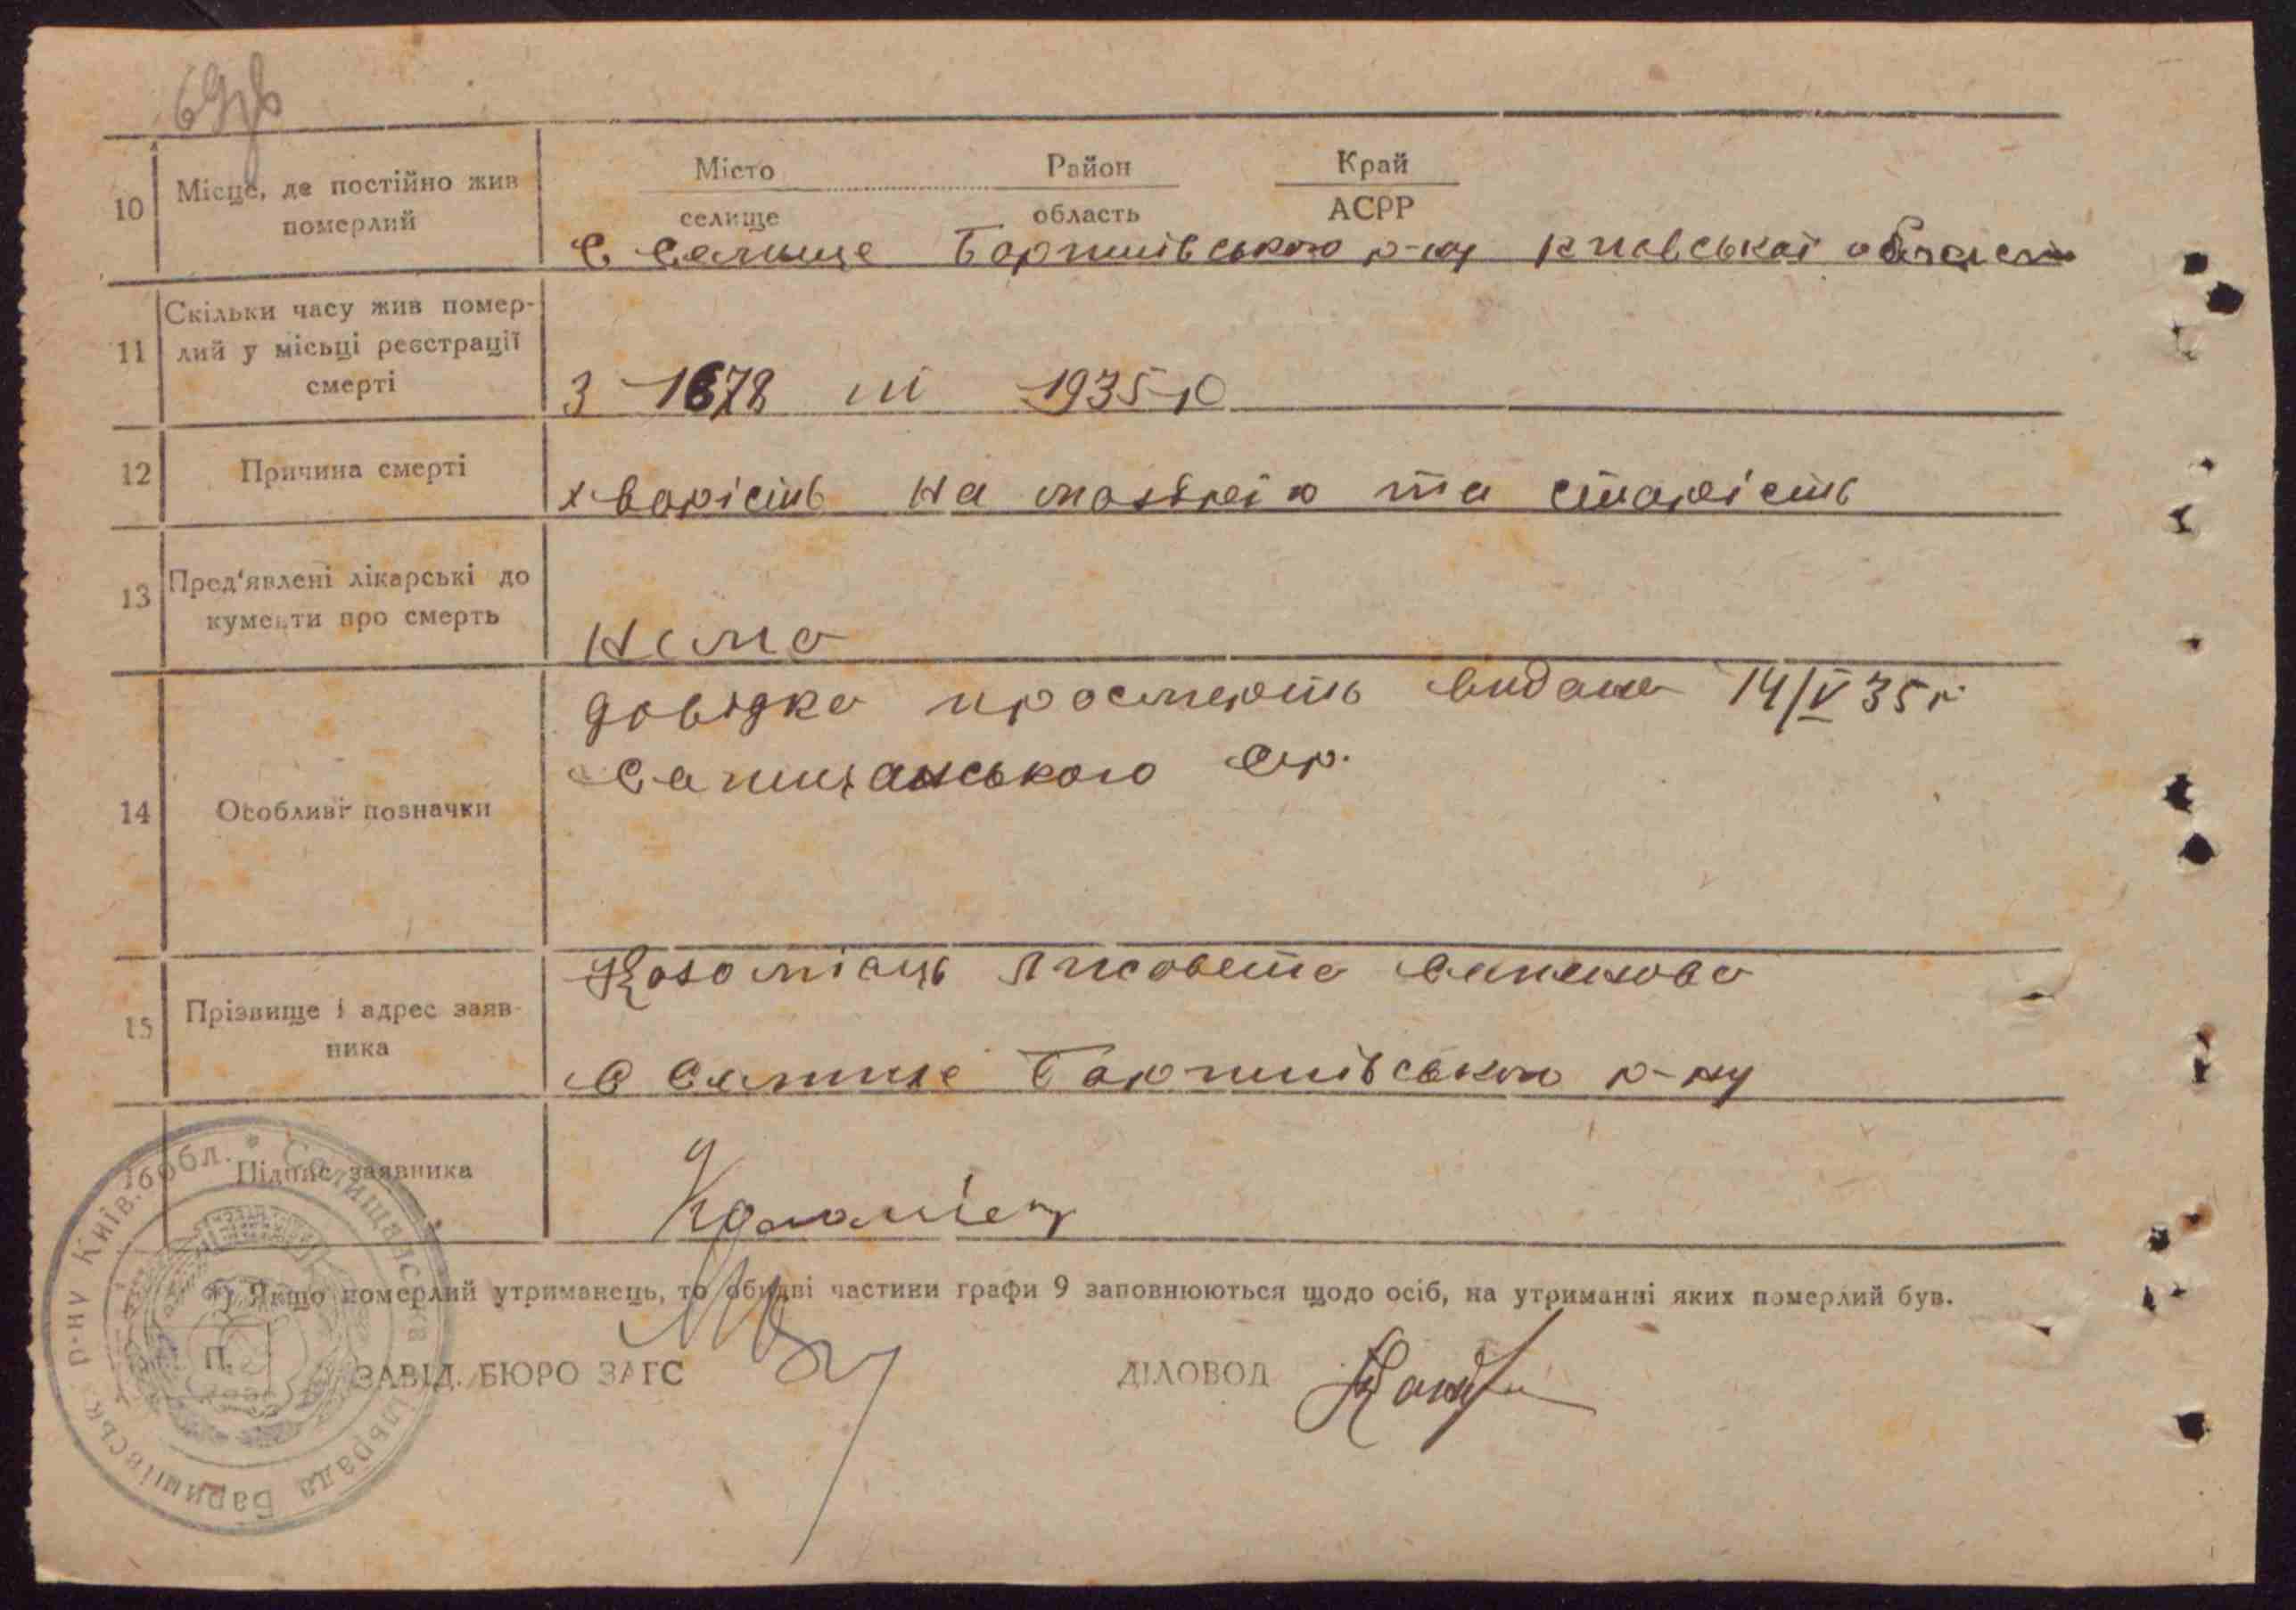 10
Місце, де постійно жив
померлий
Місто Район Край
селище область АСРР
с Селище Баришівського р-ну Київської області
11
Скільки часу жив помер-
лий у місьці реєстрації
смерті
з 1878 по 1935 р
12
Причина смерті
хворість на малярію та старість
13
Пред'явлені лікарські до
кументи про смерть
нема
14
Особливі позначки
довідка просмерть видана 14/V 35 р
Селищанського с.р.
15
Прізвище і адрес заяв-
ника
Коломієць Лисовета
с Селище Баришівського р-ну
Підпис заявника
Коломієц
*) Якщо померлий утриманець, то обидві частини графи 9 заповнюються щодо осіб, на утриманні яких померлий був.
ЗАВІД. БЮРО ЗАГС
ДІЛОВОД
Селищанська сільрада Баришівськ. р-ну Київ. обл.